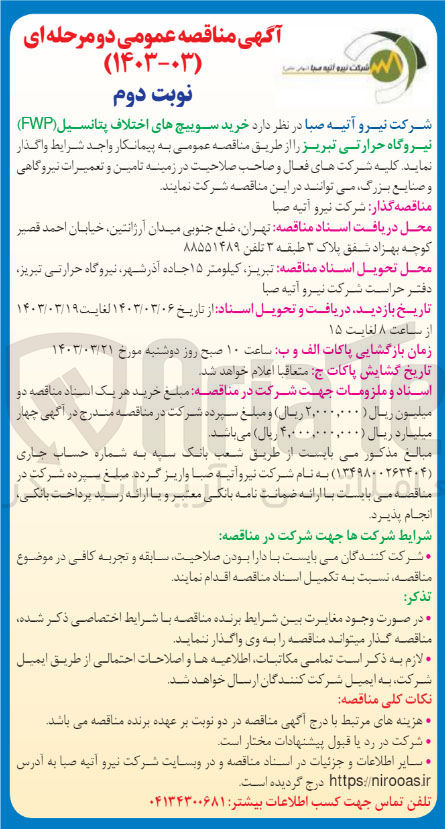 آگهی مناقصه عمومی دو مرحله‌ای
(۱۴۰۳-۰۳)
نوبت دوم
شرکت نیرو آتیه صبا (سهامی خاص)
شرکت نیرو آتیه صبا در نظر دارد خرید سوییچ های اختلاف پتانسیل (FWP)
نیروگاه حرارتی تبریز را از طریق مناقصه عمومی به پیمانکار واجد شرایط واگذار
نماید. کلیه شرکت های فعال و صاحب صلاحیت در زمینه تامین و تعمیرات نیروگاهی
و صنایع بزرگ، می توانند در این مناقصه شرکت نمایند.
مناقصه‌گذار: شرکت نیرو آتیه صبا
محل دریافت اسناد مناقصه: تهران، ضلع جنوبی میدان آرژانتین، خیابان احمد قصیر
کوچه بهزاد شفق پلاک ۳ طبقه ۳ تلفن ۸۸۵۵۱۴۸۹
محل تحویل اسناد مناقصه: تبریز، کیلومتر ۱۵جاده آذرشهر، نیروگاه حرارتی تبریز،
دفتر حراست شرکت نیرو آتیه صبا
تاریخ بازدید، دریافت و تحویل اسناد: از تاریخ ۱۴۰۳/۰۳/۰۶ لغایت ۱۴۰۳/۰۳/۱۹
از ساعت ۸ لغایت ۱۵
زمان بازگشایی پاکات الف و ب: ساعت ۱۰ صبح روز دوشنبه مورخ ۱۴۰۳/۰۳/۲۱
تاریخ گشایش پاکات ج: متعاقبا اعلام خواهد شد.
اسناد و ملزومات جهت شرکت در مناقصه: مبلغ خرید هر یک اسناد مناقصه دو
میلیون ریال (۲,۰۰۰,۰۰۰ ریال) و مبلغ سپرده شرکت در مناقصه مندرج در آگهی چهار
میلیارد ریال (۴,۰۰۰,۰۰۰,۰۰۰ ریال) می‌باشد.
مبالغ مذکور می بایست از طریق شعب بانک سپه به شماره حساب جاری
(۱۳۴۹۸۰۰۲۶۳۴۰۴) به نام شرکت نیرو آتیه صبا واریز گردد. مبلغ سپرده شرکت در
مناقصه می بایست با ارائه ضمانت نامه بانکی معتبر و یا ارائه رسید پرداخت بانکی،
انجام پذیرد.
شرایط شرکت ها جهت شرکت در مناقصه:
• شرکت کنندگان می بایست با دارا بودن صلاحیت، سابقه و تجربه کافی در موضوع
مناقصه، نسبت به تکمیل اسناد مناقصه اقدام نمایند.
تذکر:
• در صورت وجود مغایرت بین شرایط برنده مناقصه با شرایط اختصاصی ذکر شده،
مناقصه گذار میتواند مناقصه را به وی واگذار ننماید.
• لازم به ذکر است تمامی مکاتبات، اطلاعیه ها و اصلاحات احتمالی از طریق ایمیل
شرکت، به ایمیل شرکت کنندگان ارسال خواهد شد.
نکات کلی مناقصه:
• هزینه های مرتبط با درج آگهی مناقصه در دو نوبت بر عهده برنده مناقصه می باشد.
• شرکت در رد یا قبول پیشنهادات مختار است.
• سایر اطلاعات و جزئیات در اسناد مناقصه و در وبسایت شرکت نیرو آتیه صبا به آدرس
https://nirooas.ir درج گردیده است.
تلفن تماس جهت کسب اطلاعات بیشتر: ۰۴۱۳۴۳۰۰۶۸۱